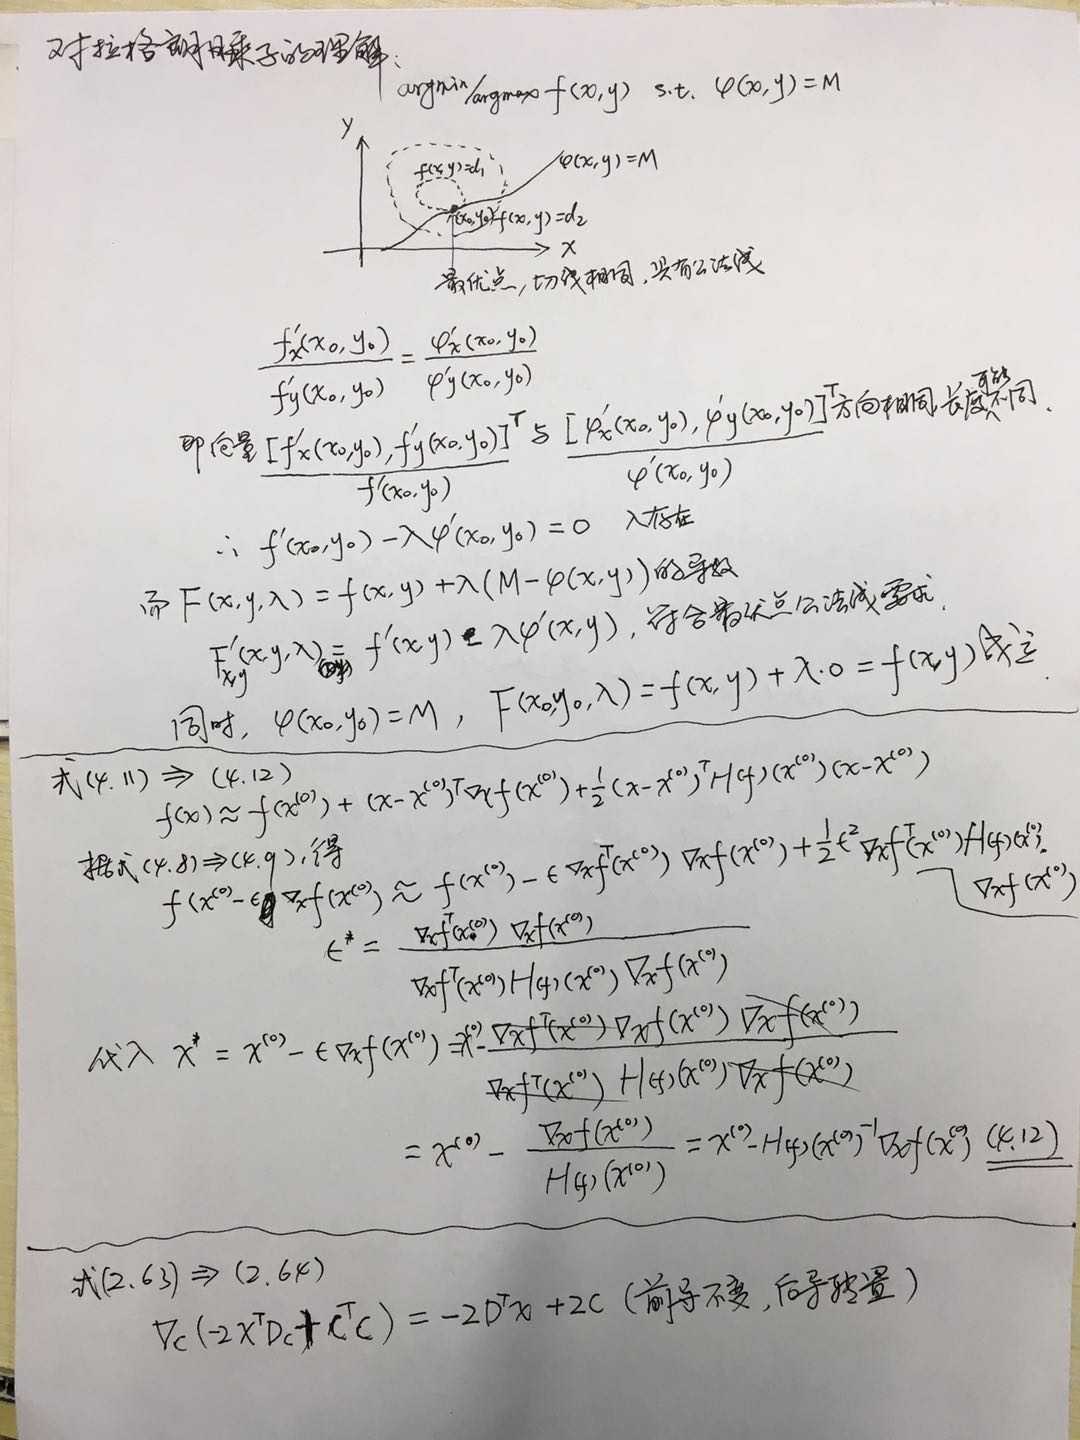 对拉格朗日乘子的理解:
argmin/argmax f(x,y) s.t. φ(x,y)=M
Y
f(x,y)=d₁
φ(x,y)=M
(x₀,y₀) f(x,y)=d₂
X
最优点,切线相同,只有公法线
f'x(x₀,y₀)/f'y(x₀,y₀) = φ'x(x₀,y₀)/φ'y(x₀,y₀)
即向量[f'x(x₀,y₀),f'y(x₀,y₀)]ᵀ与[φ'x(x₀,y₀),φ'y(x₀,y₀)]ᵀ方向相同,长度可能不同.
f'(x₀,y₀) φ'(x₀,y₀)
∴ f'(x₀,y₀)-λφ'(x₀,y₀)=0 λ存在
而F(x,y,λ)=f(x,y)+λ(M-φ(x,y))的导数
F'x,y(x,y,λ)= f'(x,y)-λφ'(x,y),符合最优点公法线要求.
同时,φ(x₀,y₀)=M,F(x₀,y₀,λ)=f(x,y)+λ·0=f(x,y)成立.
式(4.11)⇒(4.12)
f(x)≈f(x⁽⁰⁾)+(x-x⁽⁰⁾)ᵀ∇xf(x⁽⁰⁾)+½(x-x⁽⁰⁾)ᵀH(f)(x⁽⁰⁾)(x-x⁽⁰⁾)
据式(4.8)⇒(4.9),得
f(x⁽⁰⁾-ϵ∇xf(x⁽⁰⁾)≈f(x⁽⁰⁾)-ϵ∇xfᵀ(x⁽⁰⁾)∇xf(x⁽⁰⁾)+½ϵ²∇xfᵀ(x⁽⁰⁾)H(f)(x⁽⁰⁾).
∇xf(x⁽⁰⁾)
ϵ* = ∇xfᵀ(x⁽⁰⁾)∇xf(x⁽⁰⁾)/∇xfᵀ(x⁽⁰⁾)H(f)(x⁽⁰⁾)∇xf(x⁽⁰⁾)
代入 x* = x⁽⁰⁾-ϵ∇xf(x⁽⁰⁾)=x⁽⁰⁾-∇xfᵀ(x⁽⁰⁾)∇xf(x⁽⁰⁾)∇xf(x⁽⁰⁾)/∇xfᵀ(x⁽⁰⁾)H(f)(x⁽⁰⁾)∇xf(x⁽⁰⁾)
= x⁽⁰⁾-∇xf(x⁽⁰⁾)/H(f)(x⁽⁰⁾) = x⁽⁰⁾-H(f)(x⁽⁰⁾)⁻¹∇xf(x⁽⁰⁾) (4.12)
式(2.63)⇒(2.64)
∇c(-2xᵀDc+cᵀc)=-2Dᵀx+2c(前导不变,后导转置)